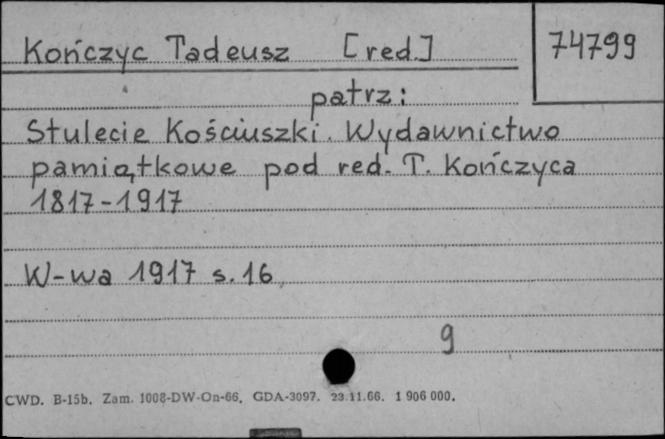 Kończyc Tadeusz [red.] 74799
patrz:
Stulecie Kościuszki. Wydawnictwo
pamiątkowe pod red. T. Kończyca
1817-1917
W-wa 1917 s. 16
9
CWD. B-15b. Zam. 1008-DW-On-66. GDA-3097. 23.11.66. 1 906 000.